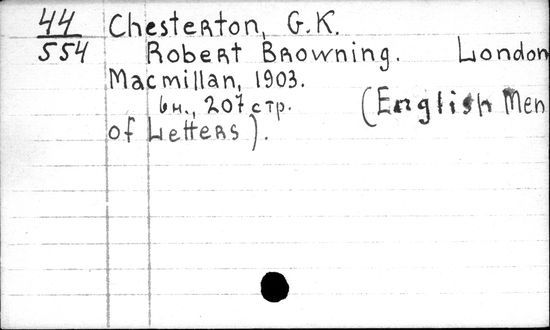 44 Chesterton, G.K.
554 Robert Browning. London
Macmillan, 1903.
6н., 207 стр. (English Men
of Letters).